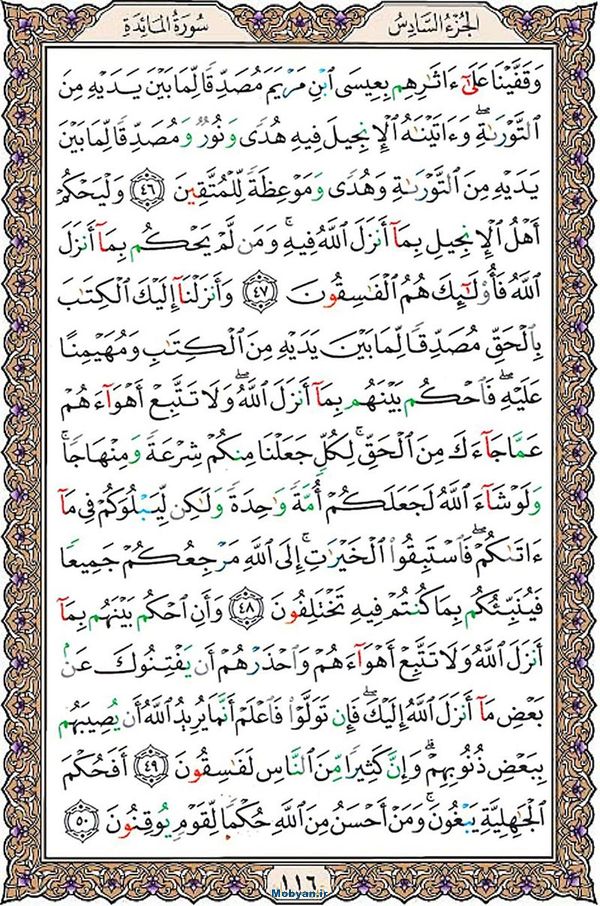 الجُزءُ السَّادِسُ
سُورَةُ المَائِدَةِ
وَقَفَّيۡنَا عَلَىٰٓ ءَاثَٰرِهِم بِعِيسَى ٱبۡنِ مَرۡيَمَ مُصَدِّقٗا لِّمَا بَيۡنَ يَدَيۡهِ مِنَ
ٱلتَّوۡرَىٰةِۖ وَءَاتَيۡنَٰهُ ٱلۡإِنجِيلَ فِيهِ هُدٗى وَنُورٞ وَمُصَدِّقٗا لِّمَا بَيۡنَ
يَدَيۡهِ مِنَ ٱلتَّوۡرَىٰةِ وَهُدٗى وَمَوۡعِظَةٗ لِّلۡمُتَّقِينَ ٤٦ وَلۡيَحۡكُمۡ
أَهۡلُ ٱلۡإِنجِيلِ بِمَآ أَنزَلَ ٱللَّهُ فِيهِۚ وَمَن لَّمۡ يَحۡكُم بِمَآ أَنزَلَ
ٱللَّهُ فَأُوْلَٰٓئِكَ هُمُ ٱلۡفَٰسِقُونَ ٤٧ وَأَنزَلۡنَآ إِلَيۡكَ ٱلۡكِتَٰبَ
بِٱلۡحَقِّ مُصَدِّقٗا لِّمَا بَيۡنَ يَدَيۡهِ مِنَ ٱلۡكِتَٰبِ وَمُهَيۡمِنًا
عَلَيۡهِۖ فَٱحۡكُم بَيۡنَهُم بِمَآ أَنزَلَ ٱللَّهُۖ وَلَا تَتَّبِعۡ أَهۡوَآءَهُمۡ
عَمَّا جَآءَكَ مِنَ ٱلۡحَقِّۚ لِكُلّٖ جَعَلۡنَا مِنكُمۡ شِرۡعَةٗ وَمِنۡهَاجٗاۚ
وَلَوۡ شَآءَ ٱللَّهُ لَجَعَلَكُمۡ أُمَّةٗ وَٰحِدَةٗ وَلَٰكِن لِّيَبۡلُوَكُمۡ فِي مَآ
ءَاتَىٰكُمۡۖ فَٱسۡتَبِقُواْ ٱلۡخَيۡرَٰتِۚ إِلَى ٱللَّهِ مَرۡجِعُكُمۡ جَمِيعٗا
فَيُنَبِّئُكُم بِمَا كُنتُمۡ فِيهِ تَخۡتَلِفُونَ ٤٨ وَأَنِ ٱحۡكُم بَيۡنَهُم بِمَآ
أَنزَلَ ٱللَّهُ وَلَا تَتَّبِعۡ أَهۡوَآءَهُمۡ وَٱحۡذَرۡهُمۡ أَن يَفۡتِنُوكَ عَنۢ
بَعۡضِ مَآ أَنزَلَ ٱللَّهُ إِلَيۡكَۖ فَإِن تَوَلَّوۡاْ فَٱعۡلَمۡ أَنَّمَا يُرِيدُ ٱللَّهُ أَن يُصِيبَهُم
بِبَعۡضِ ذُنُوبِهِمۡۗ وَإِنَّ كَثِيرٗا مِّنَ ٱلنَّاسِ لَفَٰسِقُونَ ٤٩ أَفَحُكۡمَ
ٱلۡجَٰهِلِيَّةِ يَبۡغُونَۚ وَمَنۡ أَحۡسَنُ مِنَ ٱللَّهِ حُكۡمٗا لِّقَوۡمٖ يُوقِنُونَ ٥٠
١١٦
Mobyan.ir